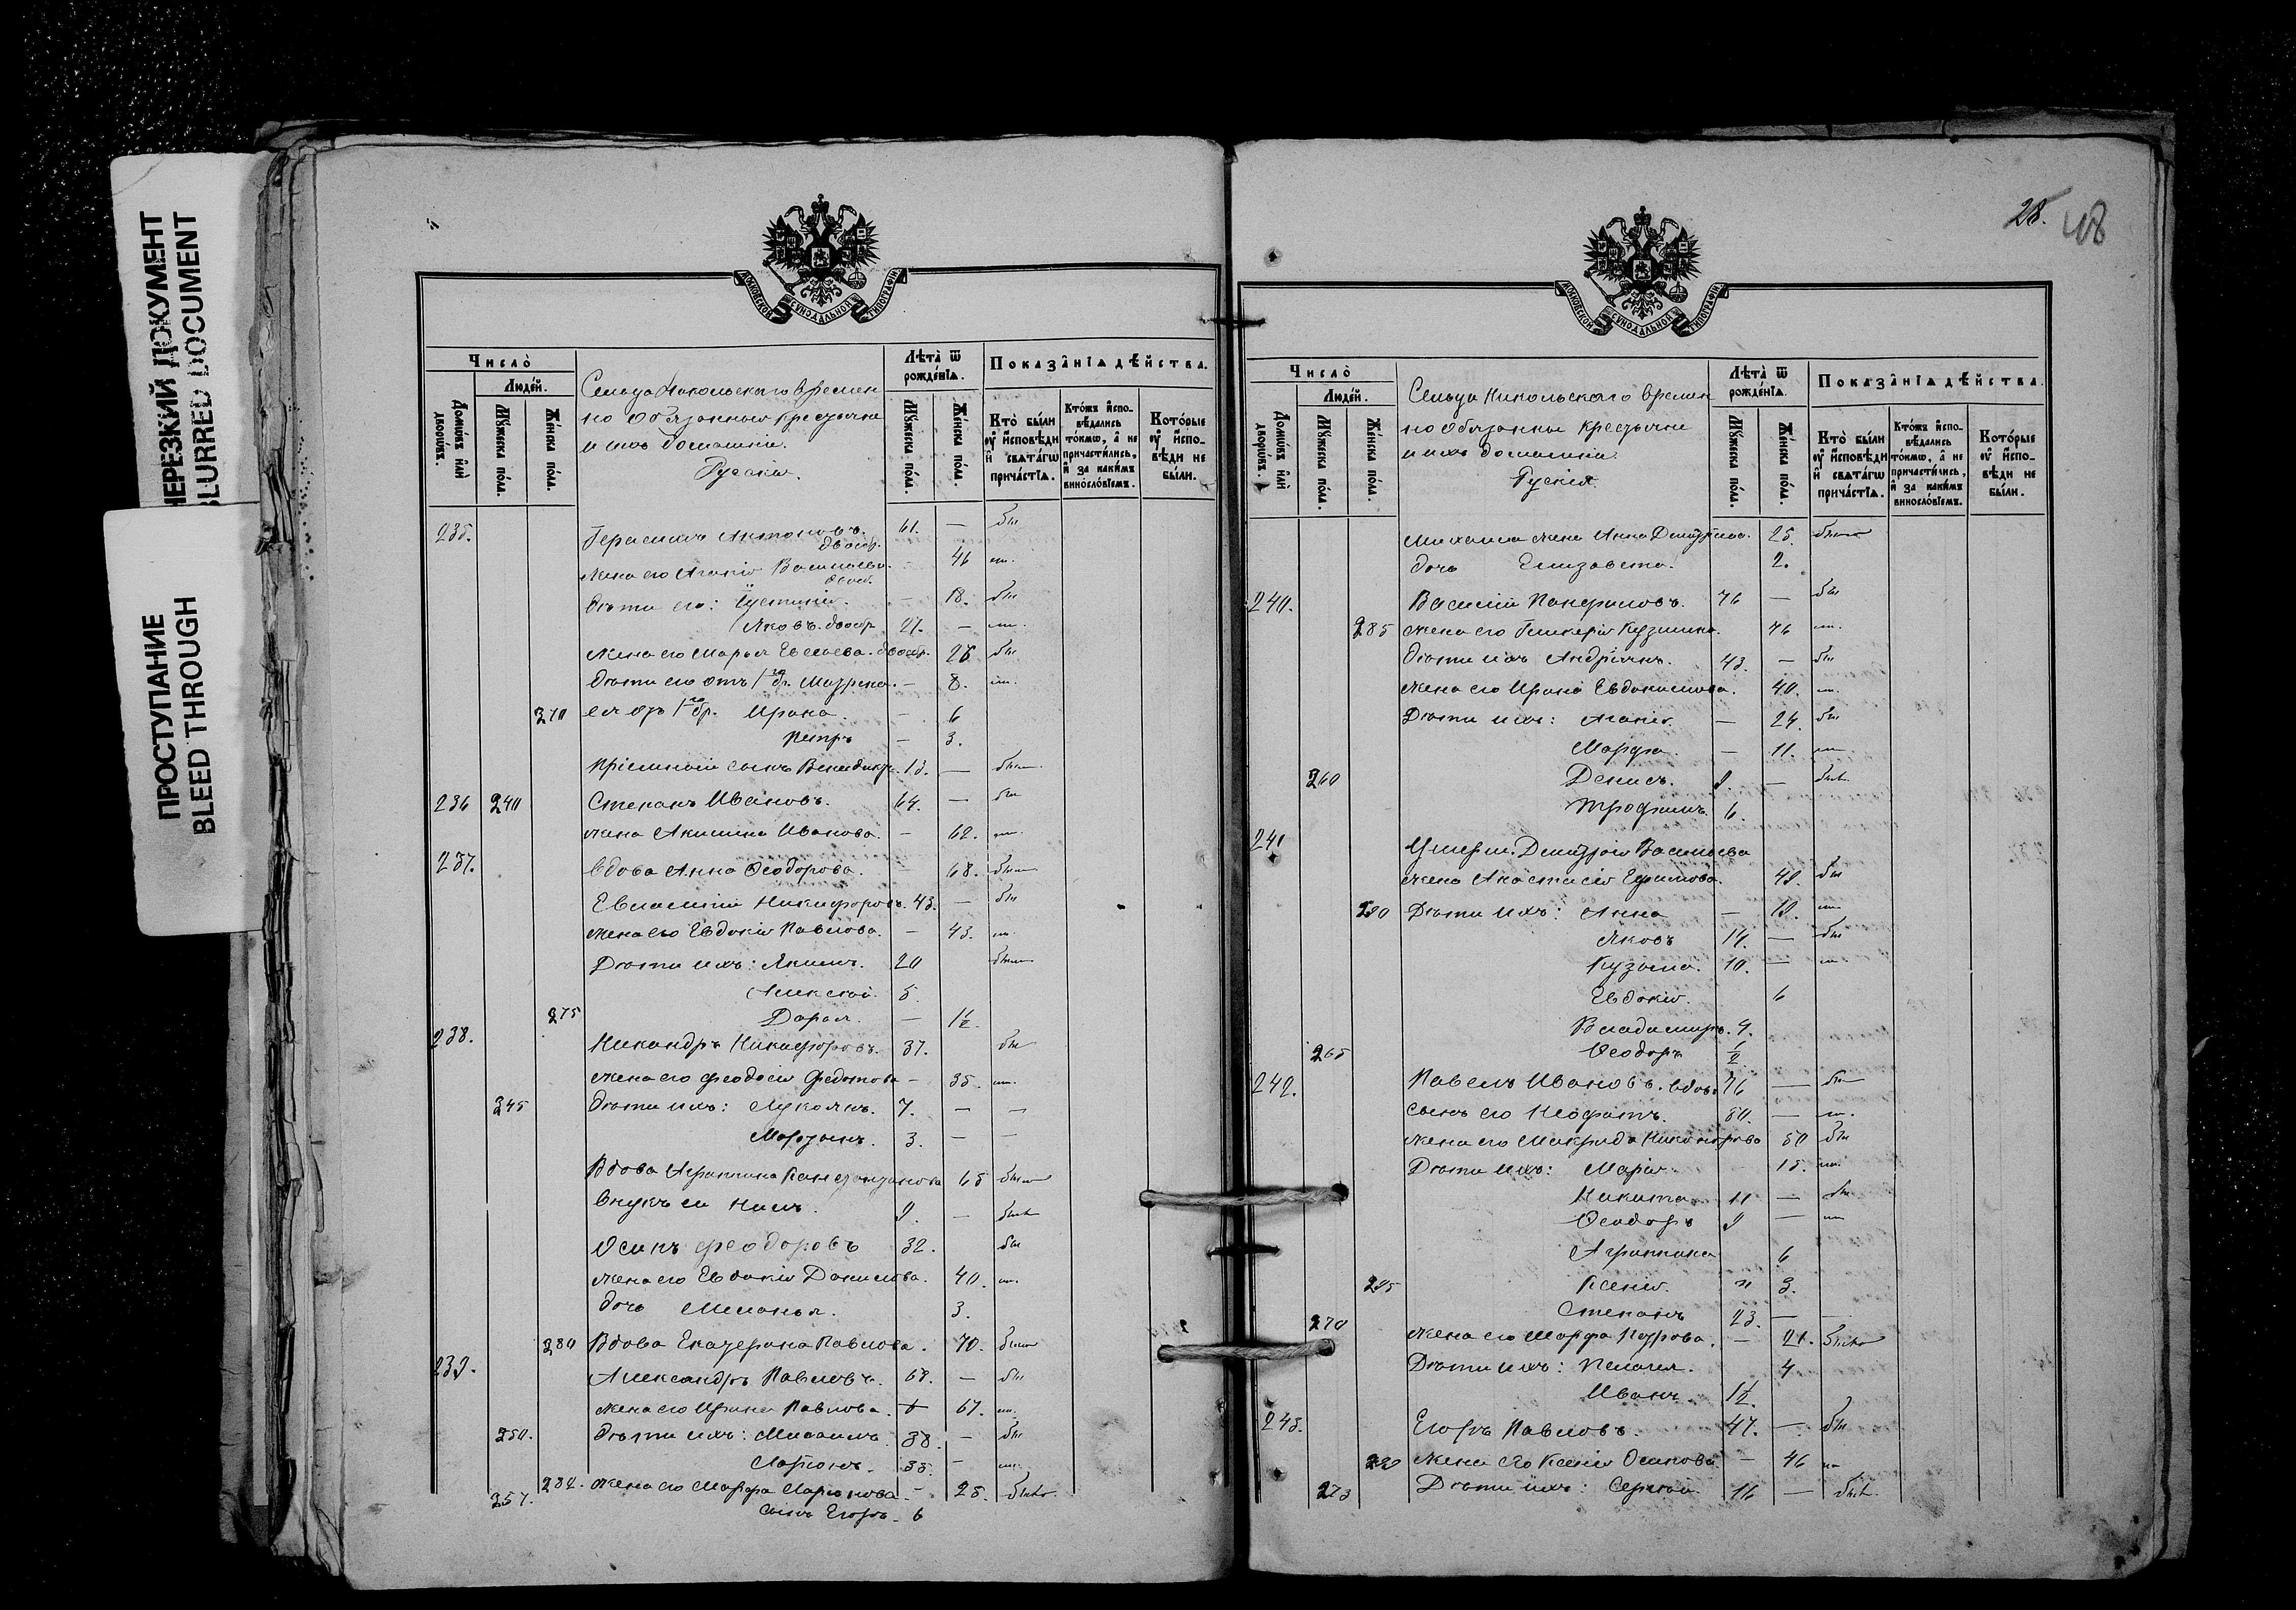 НЕРЕЗКИЙ ДОКУМЕНТ
BLURRED DOCUMENT
ПРОСТУПАНИЕ
BLEED THROUGH
МОСКОВСКОЙ СѴНОДАЛЬНОЙ ТИПОГРАФІИ
Число̀
Людéй.
Домѡ́въ и҆лѝ дворѡ́въ.
Мꙋ́жеска по́ла.
Же́нска по́ла.
Сельца Никольскаго времен
но обязанные крестьяне
и ихъ домашніи.
Русскіе.
Лѣта̀ ѿ рожде́нїѧ.
Мꙋ́жеска по́ла.
Же́нска по́ла.
Показа̂нїѧ дѣ́йства.
Кто̀ бы́ли ᲂу҆ и҆сповѣди и҆ свѧта́гѡ причáстїѧ.
Кто́жъ и҆спо-вѣдались то́кмѡ, а҆ не причасти́лись, и҆ за каки́мъ винословїемъ.
Кото́рые ᲂу҆ и҆спо-вѣди не бы́ли.
235. Герасимъ Антоновъ. двоебр. 61. — бы
жена его Агафія Васильева. двоеб. — 46
дѣти его: Іустинія. — 18. бы
Яковъ. двоебр. 27. —
жена его Марья Евсеева. двоебр. 26 бы
Дѣти его отъ 1го бр. Матрена. — 8.
270 ея отъ 1го бр. Ирина. — 6
Петръ — 3.
Пріемный сынъ Венедиктъ. 13. —
236 240 Степанъ Ивановъ. 64. — бы
жена Акилина Иванова. — 62.
237. Вдова Анна Ѳеодорова. — 68.
Евлампій Никифоровъ. 43. — бы
жена его Евдокія Павлова. — 43.
Дѣти ихъ: Якимъ. 20
Алексѣй. 5.
275 Дарья. — 1½.
238. Никандръ Никифоровъ. 37. бы
жена его Феодосія Федотова — 35.
245 Дѣти ихъ: Лукьянъ. 7. — —
Мартынъ. 3. — —
Вдова Агрипина Константинова 65
Внукъ ея Нилъ. 9. —
Осипъ Феодоровъ 32. бы
жена его Евдокія Данилова. 40.
дочь Меланья. 3.
280 Вдова Екатерина Павлова. 70.
239. Александръ Павловъ. 67. — бы
жена его Ирина Павлова. 67.
250. Дѣти ихъ: Михаилъ 38. — бы
Ларіонъ. 35. —
257. 284. жена его Марфа Ларіонова. — 25.
сынъ Егоръ. 6
28.
48
МОСКОВСКОЙ СѴНОДАЛЬНОЙ ТИПОГРАФІИ
Число̀
Людéй.
Домѡ́въ и҆лѝ дворѡ́въ.
Мꙋ́жеска по́ла.
Же́нска по́ла.
Сельца Никольскаго времен
но обязанные крестьяне
и ихъ домашніи.
Рускія.
Лѣта̀ ѿ рожде́нїѧ.
Мꙋ́жеска по́ла.
Же́нска по́ла.
Показа̂нїѧ дѣ́йства.
Кто̀ бы́ли ᲂу҆ и҆сповѣди и҆ свѧта́гѡ причáстїѧ.
Кто́жъ и҆спо-вѣдались то́кмѡ, а҆ не причасти́лись, и҆ за каки́мъ винословїемъ.
Кото́рые ᲂу҆ и҆спо-вѣди не бы́ли.
Михаила жена Анна Дмитріева. 25.
дочь Елизавета. 2.
240. Василій Панфиловъ. 76 — бы
285 жена его Гликерія Кузмина. 76
Дѣти ихъ Андріянъ. 43. — бы
жена его Ирина Евдокимова. 40.
Дѣти ихъ: Агафія. — 24. бы
Марфа. — 11.
260 Денисъ. 9. —
Трофимъ. 6.
241 Умерш. Димитрія Васильева
жена Анастасія Ефимова. 48. бы
290 Дѣти ихъ: Анна — 19.
Яковъ 14. — бы
Кузьма. 10. —
Евдокія. 6
Владимиръ. 4.
265 Ѳеодоръ ½
242. Павелъ Ивановъ. вдовъ 76 — бы
сынъ его Неофитъ. 50. —
жена его Макрида Никонорова 50 бы
Дѣти ихъ: Марія. — 15.
Никита. 11 — бы
Ѳеодоръ 9 —
Агрипина 6
295 Ксенія. 3.
270 Степанъ 23. —
жена его Марфа Петрова. — 21.
Дѣти ихъ: Пелагея. 4
Иванъ 1½.
243. Егоръ Павловъ. 47. — бы
жена его Ксенія Осипова. — 46
273 Дѣти ихъ: Сергѣй. 16 —